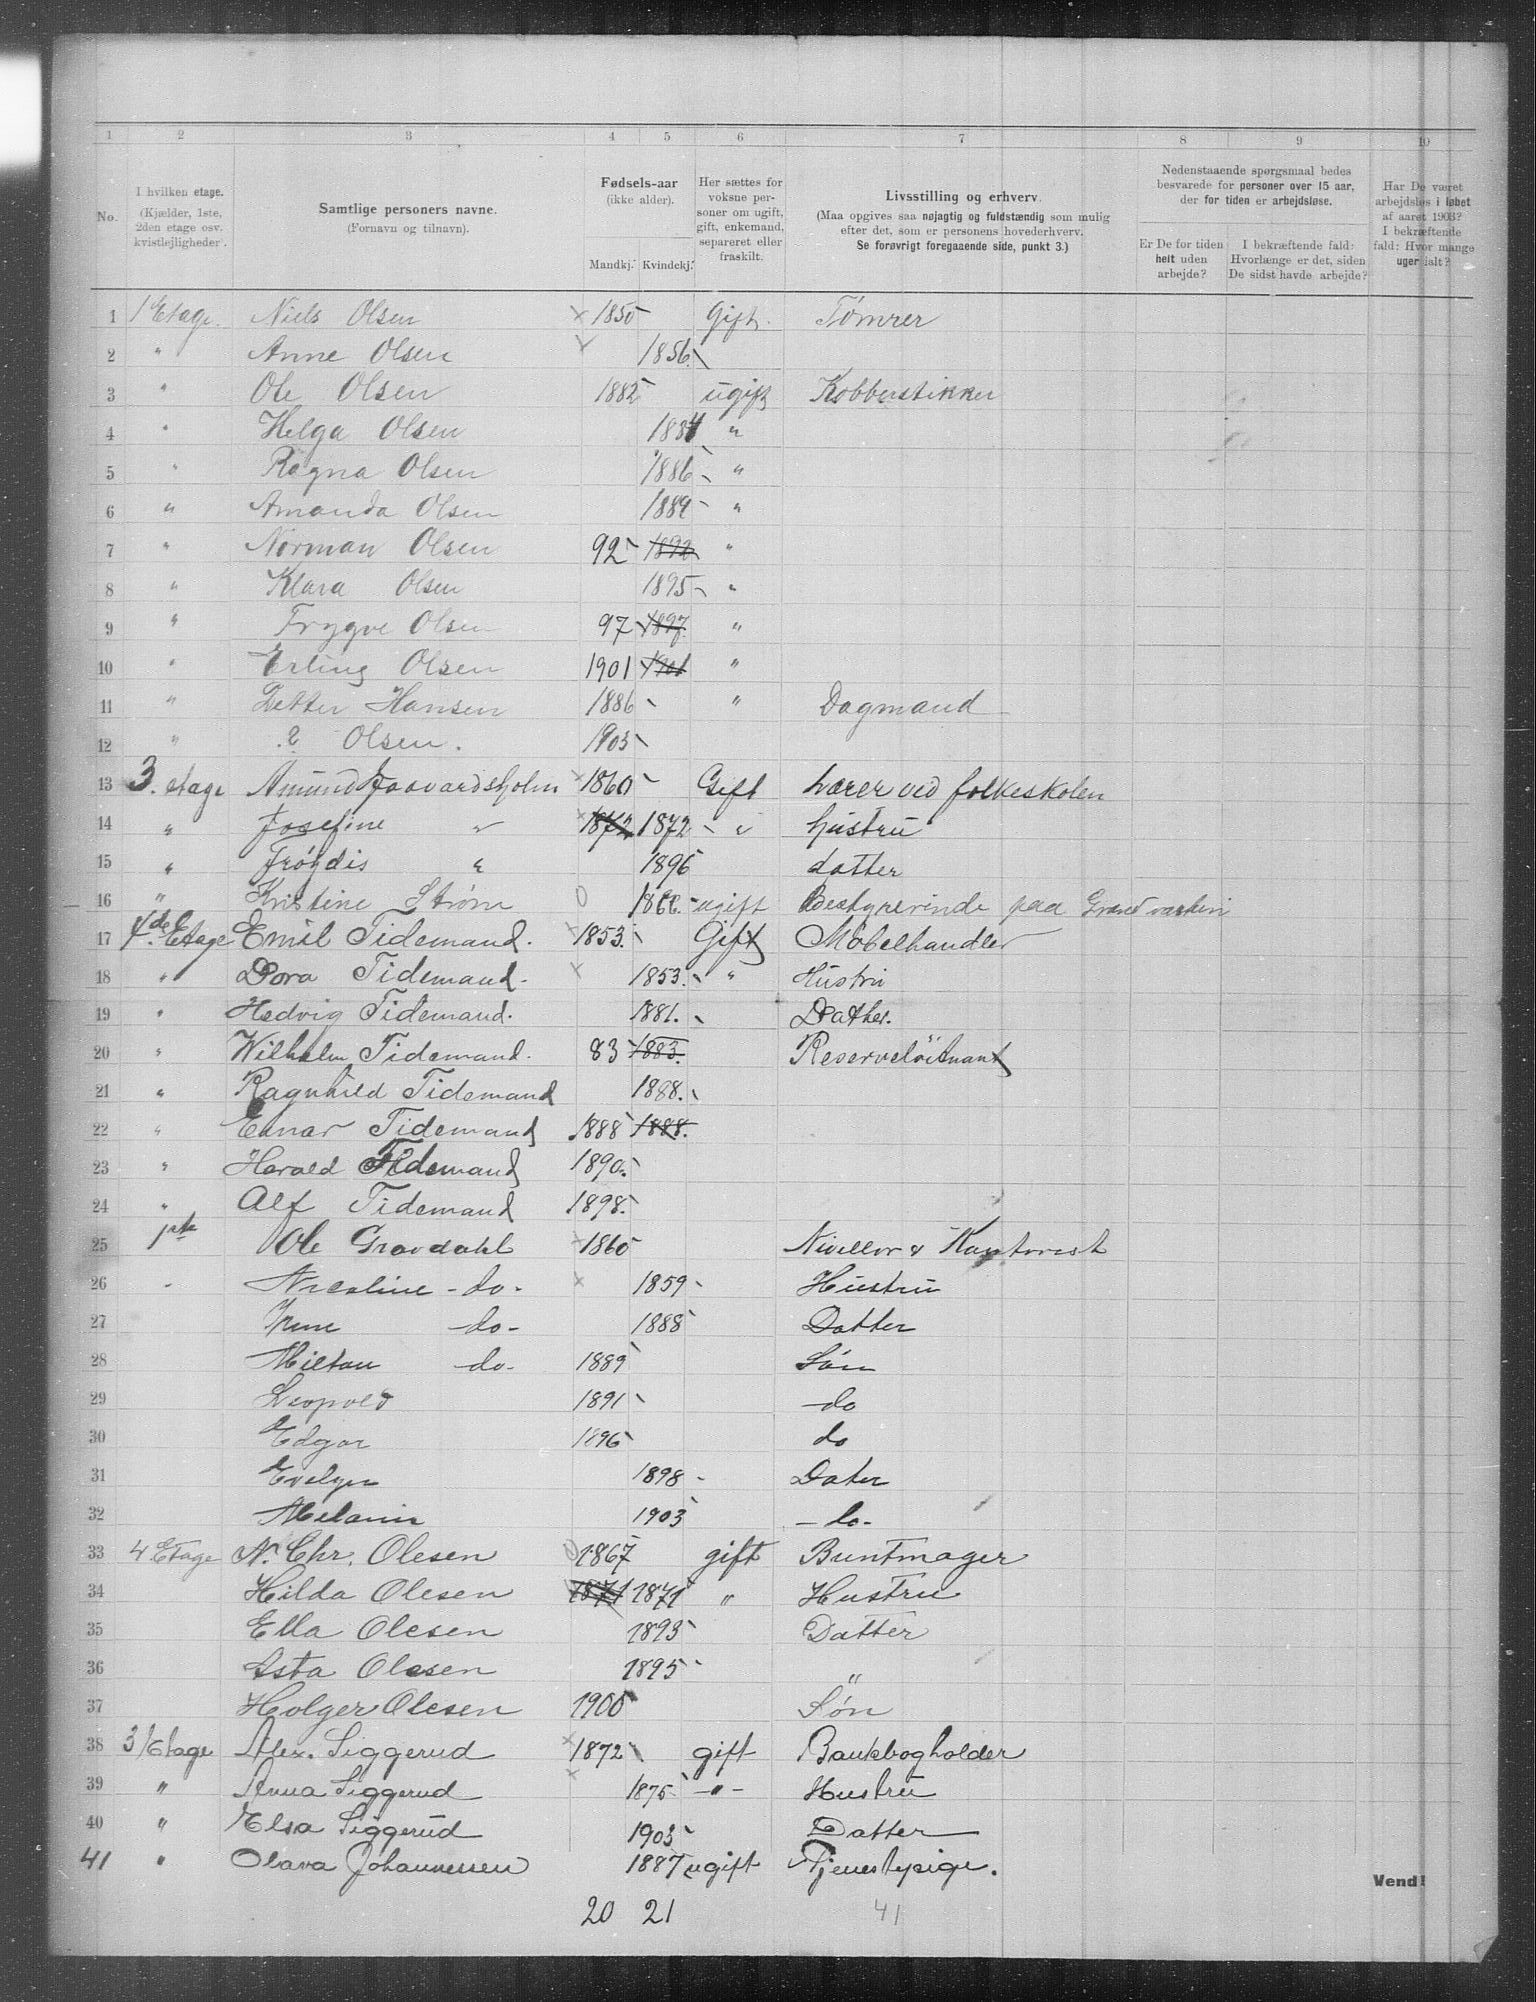 1 2 3 4 5 6 7 8 9 10
No.
I hvilken etage. (Kjælder, 1ste, 2den etage osv. kvistlejligheder.
Samtlige personers navne. (Fornavn og tilnavn).
Fødsels-aar (ikke alder).
Mandkj. Kvindekj.
Her sættes for voksne personer om ugift, gift, enkemand, separeret eller fraskilt.
Livsstilling og erhverv. (Maa opgives saa nøjagtig og fuldstændig som mulig efter det, som er personens hovederhverv. Se forøvrigt foregaaende side, punkt 3.)
Nedenstaaende spørgsmaal bedes besvarede for personer over 15 aar, der for tiden er arbejdsløse.
Er De for tiden helt uden arbejde?
I bekræftende fald: Hvorlænge er det, siden De sidst havde arbejde?
Har De været arbejdsløs i løbet af aaret 1903? I bekræftende fald: Hvor mange uger ialt?
1 1 Etage. Niels Olsen x 1850 Gift. Tømrer
2 " Anne Olsen 1856.
3 " Ole Olsen 1882 ugift Kobberstikker
4 " Helga Olsen 1884 "
5 " Ragna Olsen 1886 "
6 " Amanda Olsen 1889 "
7 " Norman Olsen 92 1892 "
8 " Klara Olsen 1895 "
9 " Trygve Olsen 97 1897 "
10 " Erling Olsen 1901 1901 "
11 " Petter Hansen 1886 " Dagmand
12 " ? Olsen. 1903
13 3. etage Amund x 1860 Gift Lærer ved folkeskolen
14 " Josefine " x 1872 1872 " hustru
15 " Frøydis " 1896 datter
16 " Kristine Strøm 0 ugift Bestyrerinde paa
17 4de Etage Emil Tidemand. 1853. Gift Møbelhandler
18 " Dora Tidemand. x 1853. " Hustru
19 " Hedvig Tidemand. 1881. Datter.
20 " Wilhelm Tidemand. 83 1883. Reserveløitnant
21 " Ragnhild Tidemand 1888.
22 " Einar Tidemand 1888 1888.
23 " Harald Tidemand 1890.
24 " Alf Tidemand 1898.
25 1ste Ole Gravdahl x 1860 Nivellør & Kontorist
26 " Nicoline -do- x 1859 Hustru
27 Irene -do- 1888 Datter
28 Milton -do- 1889 Søn
29 Leopold 1891 do
30 Edgar 1896 do
31 Evelyn 1898 Dater
32 Melanie 1903 -do-
33 4 Etage N. Chr. Olesen 0 1867 gift Buntmager
34 Hilda Olesen 1871 1871 " Hustru
35 Ella Olesen 1893 Datter
36 Asta Olesen 1895 "
37 Holger Olesen 1900 Søn
38 3 Etage Alex. Siggerud x 1872 gift Bankbogholder
39 " Anna Siggerud x 1875 -"- Hustru
40 " Elsa Siggerud 1903 Datter
41 " Olava Johannessen 1887 ugift Tjenestepige.
Vend!
20 21 41